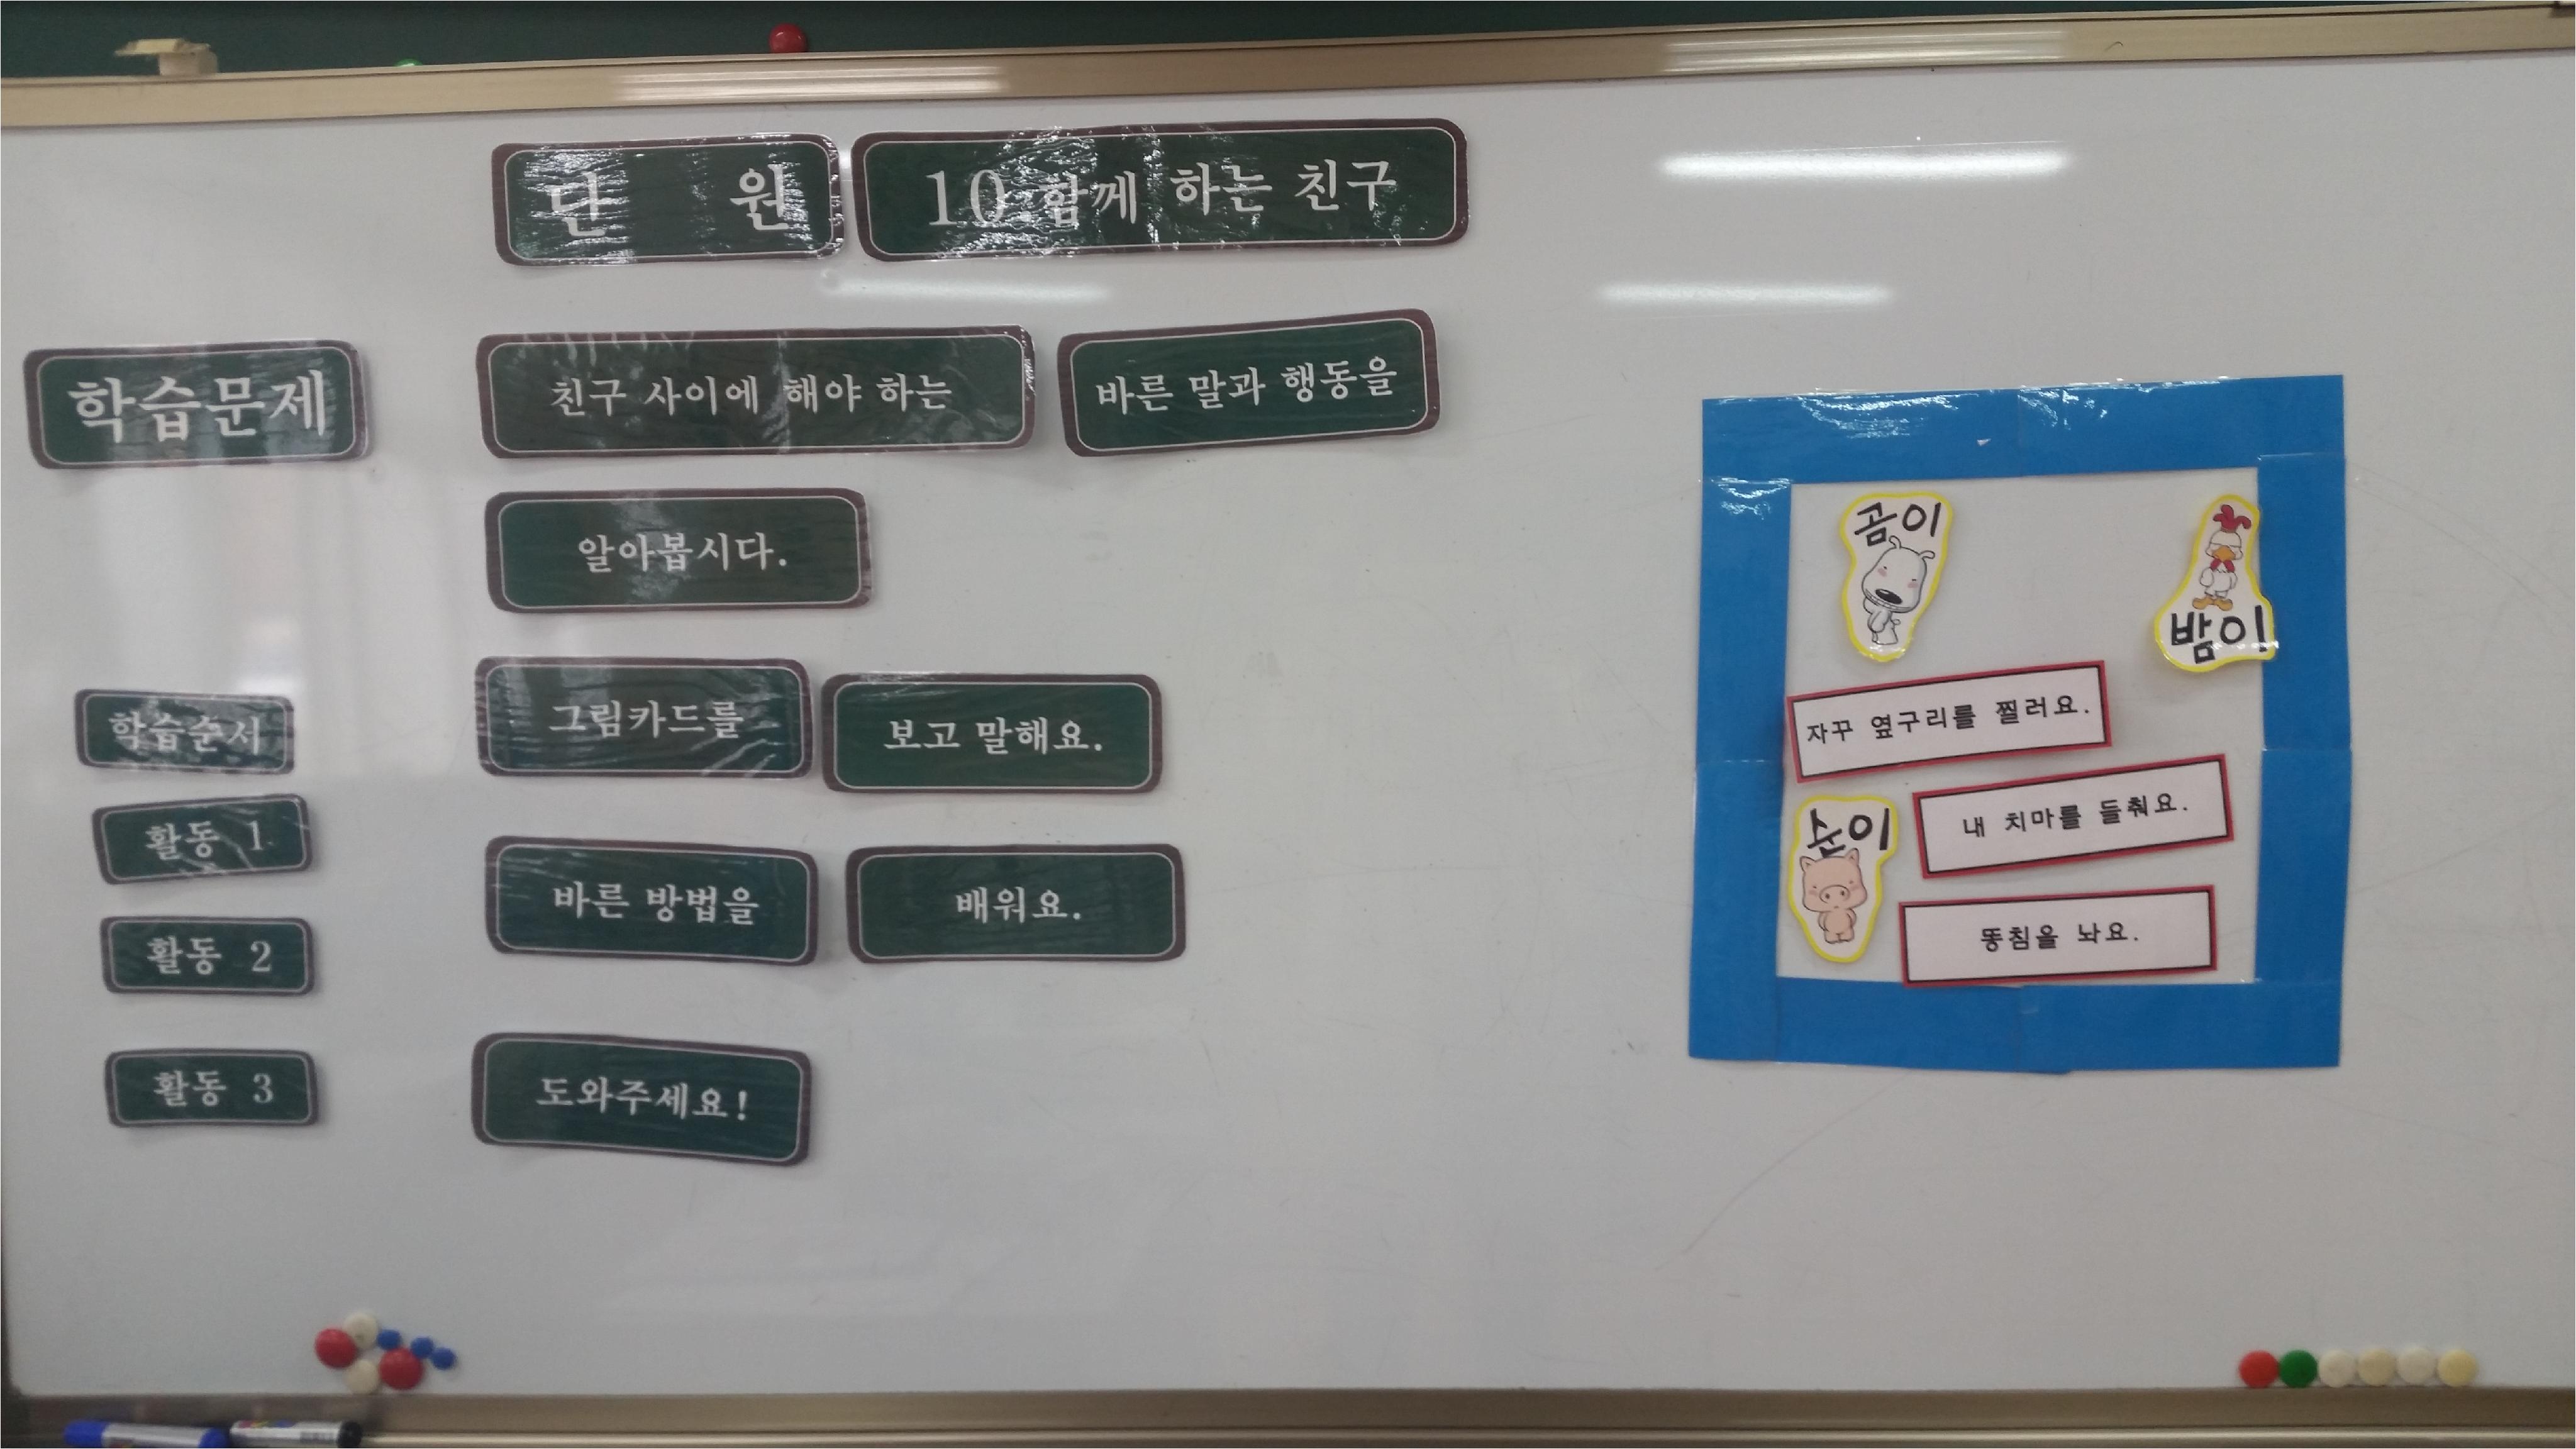 단 원 10. 함께 하는 친구
학습문제 친구 사이에 해야 하는 바른 말과 행동을
알아봅시다.
학습순서
활동 1 그림카드를 보고 말해요.
활동 2 바른 방법을 배워요.
활동 3 도와주세요!
곰이
밤이
자꾸 옆구리를 찔러요.
내 치마를 들춰요.
순이
똥침을 놔요.